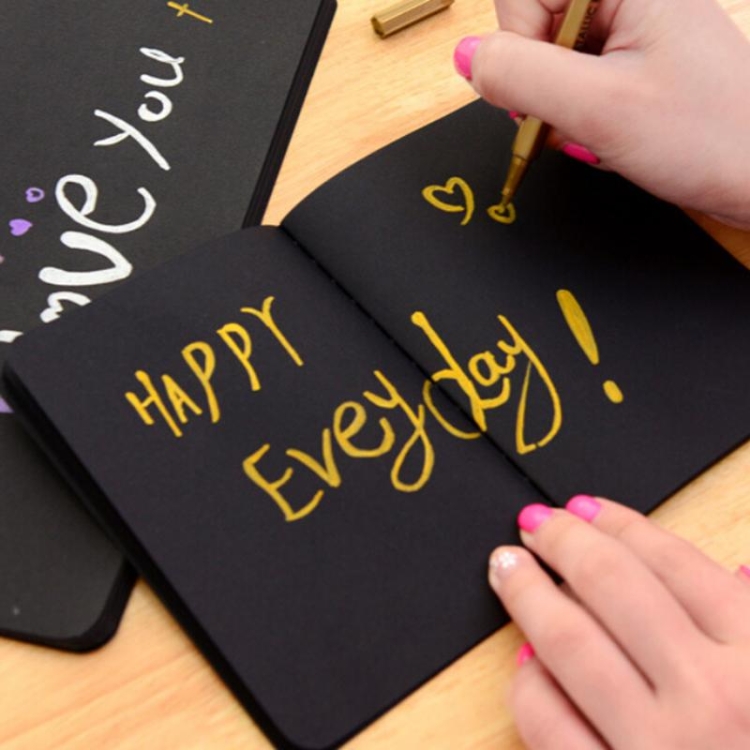 You
HAPPY
Eveyday!